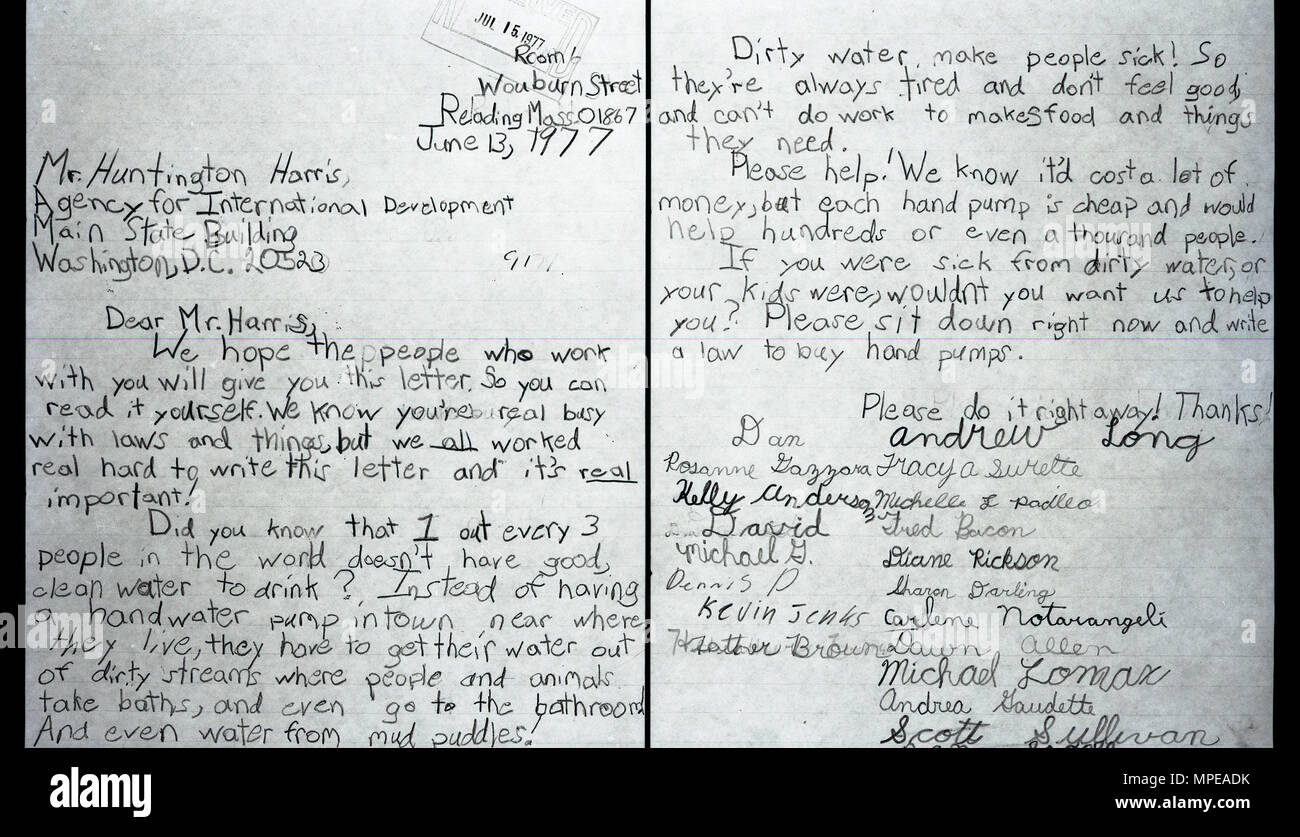 JUL 15, 1977
Room 1
Wouburn Street
Relading Mass. 01867
June 13, 1977
Mr. Huntington Harris,
Agency for International Development
Main State Building
Washington, D.C. 20523
Dear Mr. Harris,
We hope the people who work
with you will give you this letter. So you can
read it yourself. We know you're real busy
with laws and things, but we all worked
real hard to write this letter and it's real
important!
Did you know that 1 out every 3
people in the world doesn't have good,
clean water to drink? Instead of having
a handwater pump in town near where
they live, they have to get their water out
of dirty streams where people and animals
take baths, and even go to the bathroom
And even water from mud puddles!
Dirty water, make people sick! So
they're always tired and don't feel good,
and can't do work to makes food and things
they need.
Please help! We know it'd cost a lot of
money, but each hand pump is cheap and would
help hundreds or even a thourand people.
If you were sick from dirty water, or
your kids were, wouldn't you want us to help
you? Please sit down right now and write
a law to buy hand pumps.
Please do it right away! Thanks!
Dan
Rosanne Gazzara
Kelly Anderson
David
Michael G.
Dennis P
Kevin Jenks
Heather Brown
Andrew Long
Tracy A Surette
Michelle L Padleo
Fred Bacon
Diane Rickson
Sharon Darling
Carlene Notarangeli
Dawn Allen
Michael Lomax
Andrea Gaudette
Scott Sullivan
alamy stock photo
alamy
Image ID: MPEADK
www.alamy.com